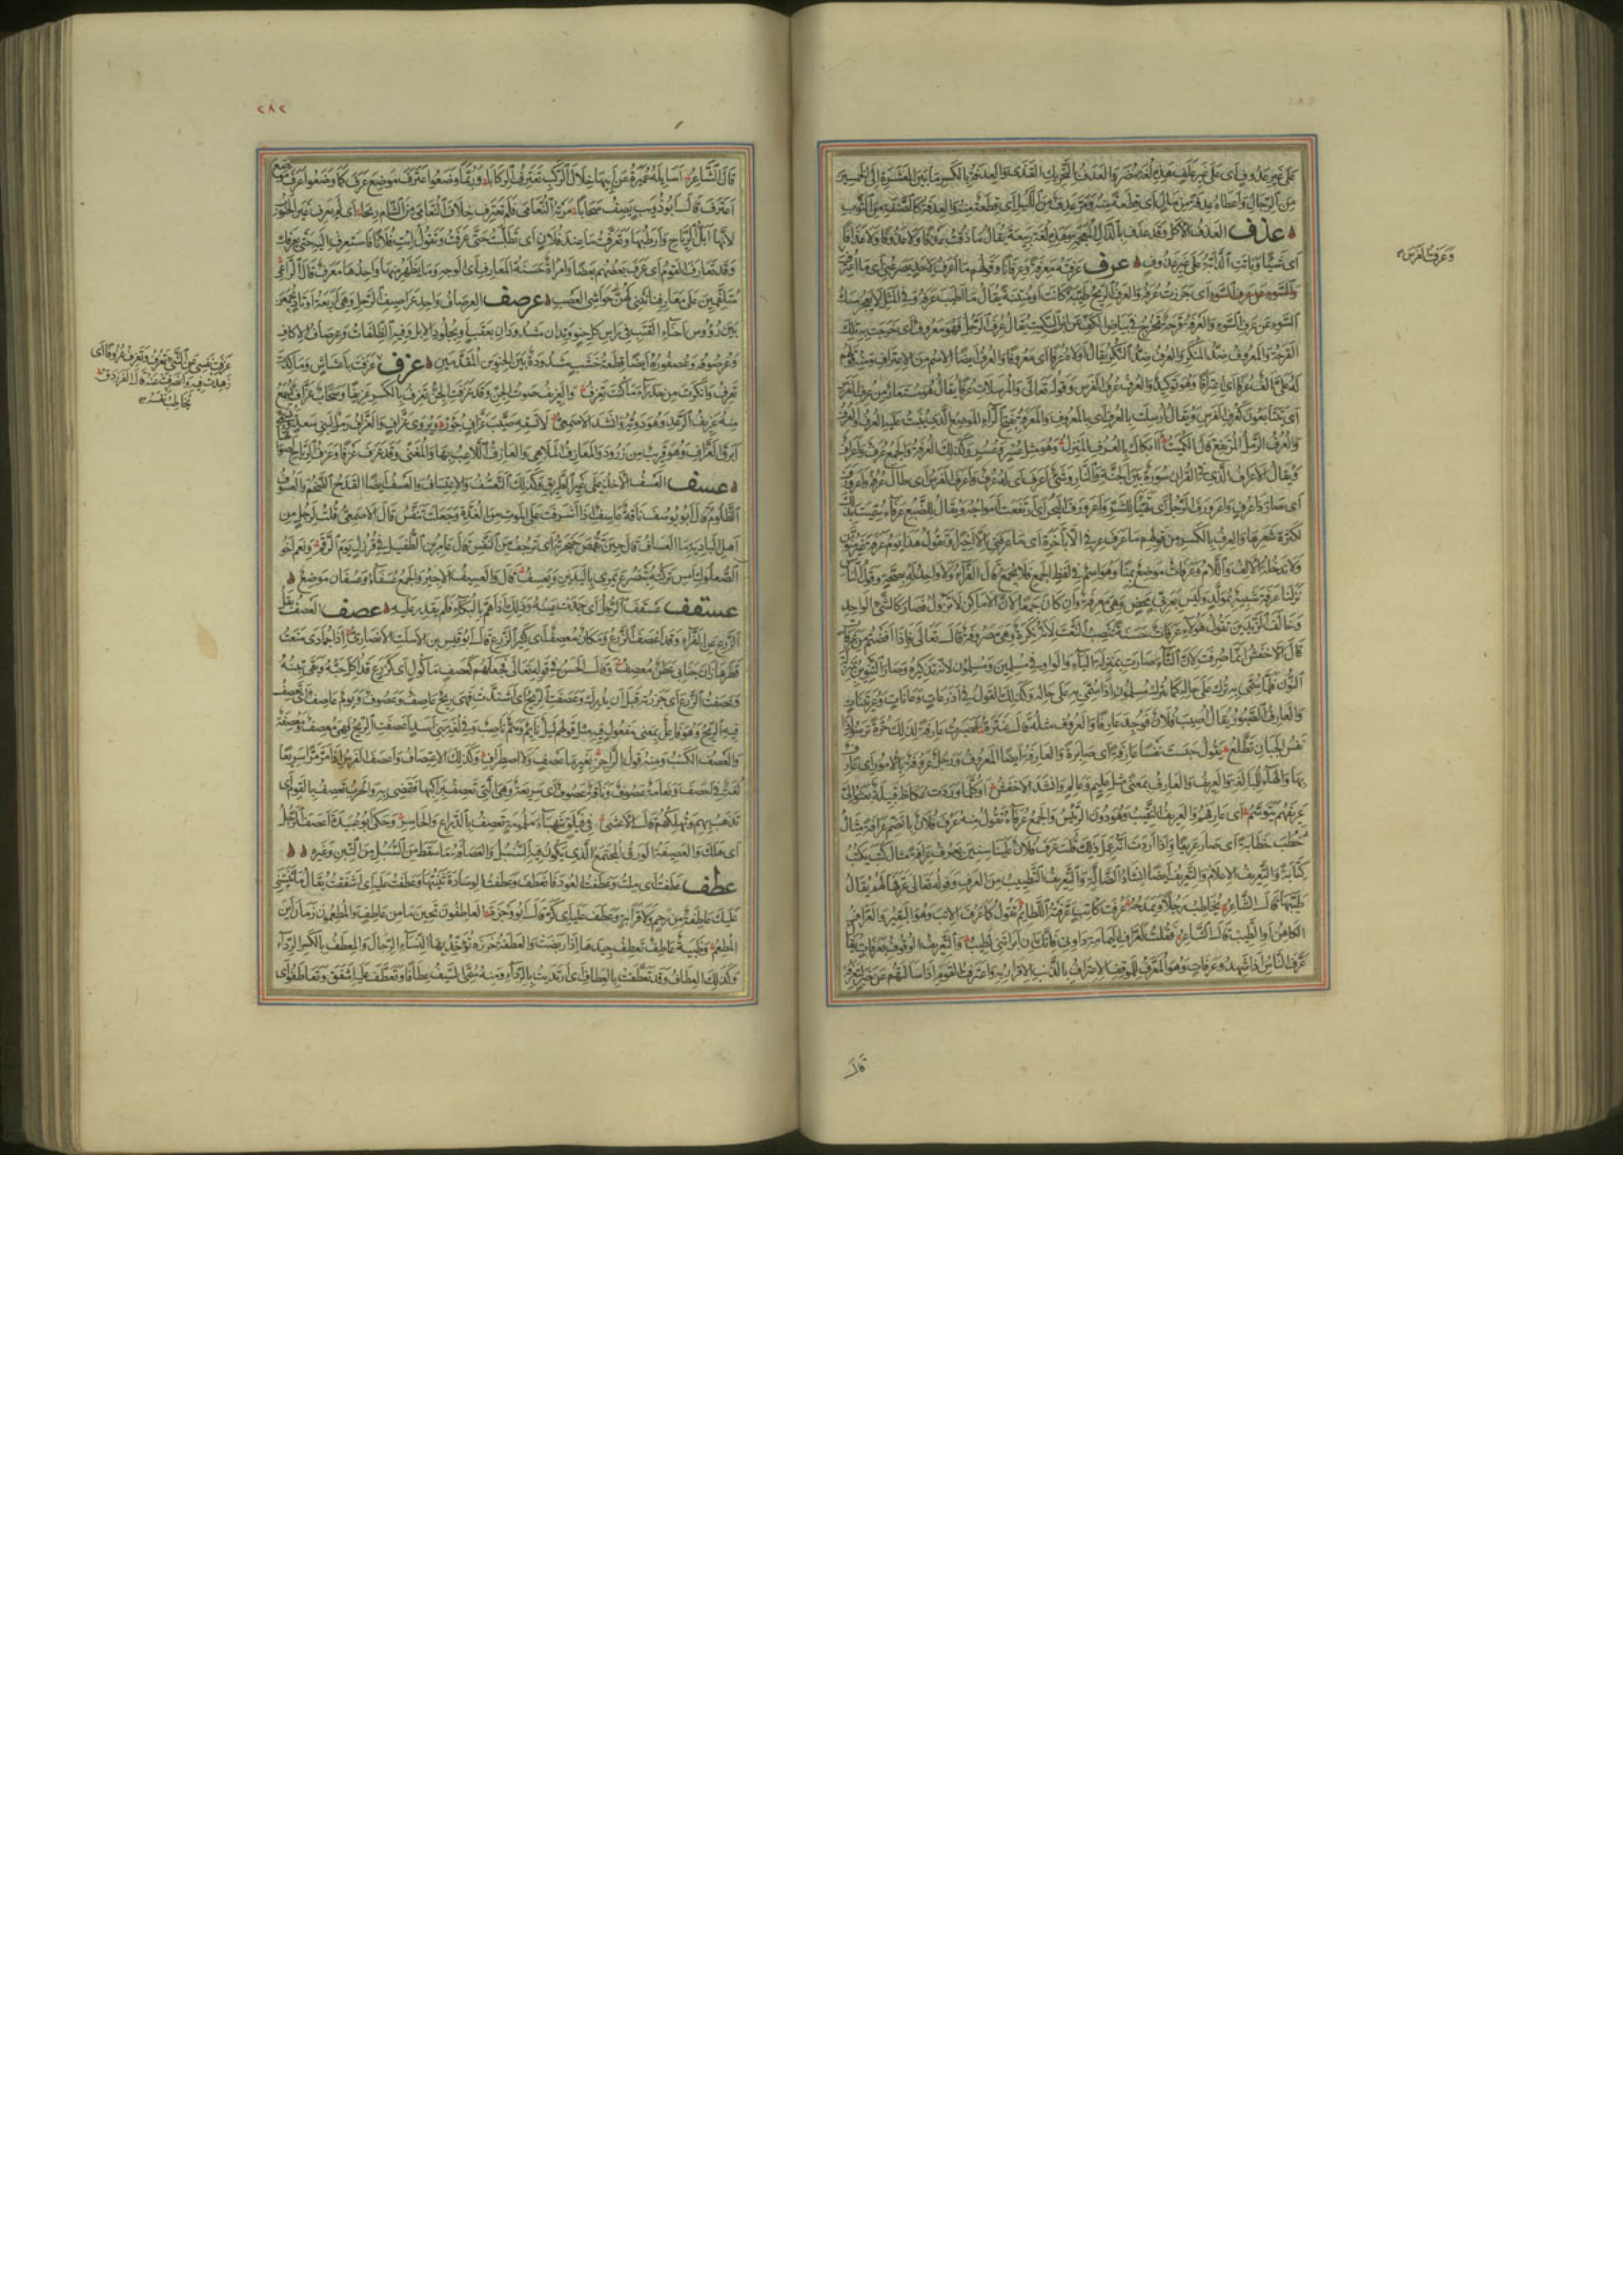 على غير عدوف اى على غير علف هذه لغة مضر والعدف بالتحريك القذى والعدفة بالكسر ما بين العشرة الى الخمسين
من الرجال واعطاه عدفة من مال اى قطعة منه ومر عدف من الليل اى قطعة منه والعدفة كالصنفة من الثوب
عذف العذف الاكل وقد عذف بالذال المعجمة وهذه لغة ربيعة يقال ما ذقت عذفا ولا عذوفا ولا عذافا
اى شيئا وباتت الدابة على غير عذوف عرف عرفته معرفة وعرفانا وقولهم ما اعرف لاحد يصرعنى اى ما اعترف
اى جززت عرفه والعرف الريح طيبة كانت او منتنة يقال ما اطيب عرفه وفى المثل لا يعجز مسك
السوء عن عرف السوء والعرفة قرحة تخرج فى بياض الكف عن ابن السكيت يقال عرف الرجل فهو معروف اى خرجت به تلك
القرحة والمعروف ضد المنكر والعرف ضد النكر يقال اولاه عرفا اى معروفا والعرف ايضا الاسم من الاعتراف ومنه قولهم
له على الف عرفا اى اعترافا وهو توكيد والعرف عرف الفرس وقوله تعالى والمرسلات عرفا يقال هو مستعار من عرف الفرس
اى يتتابعون كعرف الفرس ويقال ارسلت بالعرف اى بالمعروف والمعرفة بفتح الراء الموضع الذى ينبت عليه العرف والعرف
والعرف الرمل المرتفع قال الكميت اابكاك بالعرف المنزل وهو مثل عسر وعسر وكذلك العرفة والجمع عرف واعراف
ويقال الاعراف الذى فى القران سور بين الجنة والنار وشىء اعرف اى له عرف واعرف الفرس اى طال عرفه واعرورف
اى صار ذا عرف واعرورف الرجل اى تهيا للشر واعرورف البحر اى ارتفعت امواجه ويقال للضبع عرفاء سميت بذلك
لكثرة شعرها والعرف بالكسر من قولهم ما عرف عرفى الا باخرة اى ما عرفنى الا اخيرا وتقول هذا يوم عرفة غير منون
ولا تدخله الالف واللام وعرفات موضع بمنى وهو اسم فى لفظ الجمع فلا يجمع قال الفراء ولا واحد له بصحة وقول الناس
نزلنا عرفة شبيه بمولد وليس بعربى محض وهى معرفة وان كان جمعا لان الاماكن لا تزول فصار كالشىء الواحد
وخالف الزيدين تقول هؤلاء عرفات حسنة تنصب النعت لانه نكرة وهى مصروفة قال تعالى فاذا افضتم من عرفات
قال الاخفش انما صرفت لان التاء صارت بمنزلة الياء والواو فى مسلمين ومسلمون لانه تذكيره وصار التنوين بمنزلة
النون فلما سمى به ترك على حاله كما يترك مسلمون اذا سمى به على حاله وكذلك القول فى اذرعات وعانات وعريتنات
والعارف الصبور يقال اصيب فلان فوجد عارفا والعروف مثله قال عنترة فصبرت عارفة لذلك حرة ترسو اذا
نفس الجبان تطلع يقول حبست نفسا عارفة اى صابرة والعارفة ايضا المعروف ورجل عروفة بالامور اى عارف
بها والهاء للمبالغة والعريف والعارف بمعنى مثل عليم وعالم وانشد الاخفش اوكلما وردت عكاظ قبيلة بعثوا الى
عريفهم يتوسم اى عارفهم والعريف النقيب وهو دون الرئيس والجمع عرفاء تقول منه عرف فلان بالضم عرافة مثال
خطب خطابة اى صار عريفا واذا اردت انه عمل ذلك قلت عرف فلان علينا سنين يعرف عرافة مثال كتب يكتب
كتابة والتعريف الاعلام والتعريف ايضا انشاد الضالة والتعريف التطييب من العرف وقوله تعالى عرفها لهم يقال
طيبها قال الشاعر يخاطب رجلا ويمدحه عرفت كاتب عرفته اللطائم تقول كما عرف الاتب وهو البقير والعراف
الكاهن او الطبيب قال الشاعر فقلت لعراف اليمامة داونى فانك ان ابراتنى لطبيب والتعريف الوقوف بعرفات يقال
عرف الناس اذا شهدوا عرفات وهو المعرف للموقف والاعتراف بالذنب الاقرار به واعترفت القوم اذا سالتهم عن خبر لتعرفه
وعرفت الفرس
قال
٢٨٢
قال الشاعر اسايلة عميرة عن ابيها خلال الركب تعترف الركابا وربما وضعوا اعترف موضع عرف كما وضعوا عرف موضع
اعترف قال ابو ذؤيب يصف سحابا مرته النعامى فلم تعترف خلاف النعامى من الشام ريحا اى لم يعرف غير الجنوب
لانها ابل الرياح وارطبها وتعرفت ما عند فلان اى تطلبت حتى عرفت وتقول ايت فلانا فاستعرف اليه حتى يعرفك
وقد تعارف القوم اى عرف بعضهم بعضا وامراة حسنة المعارف اى الوجه وما يظهر منها واحدها معرف قال الراعى
متلثمين على معارفنا نثنى لهن حواشى العصب عرصف العرصاف واحد عراصيف الرحل وهى اربعة اوتاد يجمعن
بين رؤوس احناء القتب فى راس كل حنو وتدان مشدودان بعقب او بجلود الابل وفيه الظلفات وعرصاف الاكاف
وعرصوفه وعصفوره ايضا قطعة خشب مشدودة بين الحنوين المقدمين عزف عزفت باعشاش وما كدت
تعزف وانكرت من حدراء ما كنت تعرف والعزيف صوت الجن وقد عزفت الجن تعزف بالكسر عزيفا وسحاب عزاف يسمع
منه عزيف الرعد وهو دويه وانشد الاصمعى لا تسقه صيب عزاف جؤر ويروى غراف والعزاف رمل لبنى سعد
ابرق العزاف وهو قريب من زرود والمعازف الملاهى والعازف اللاعب بها والمغنى وقد عزف عزفا وعزف الرياح اصواتها
عسف العسف الاخذ على غير الطريق وكذلك التعسف والاعتساف والعسف ايضا القدح الضخم والعسوف
الظلوم قال ابو يوسف ناقة عاسف اذا اشرفت على الموت من الغدة وجعلت تنفس قال الاصمعى قلت لرجل من
اهل البادية ما العساف قال حين تقمص حنجرته اى ترجف من النفس قال عامر بن الطفيل فى قرزل يوم الرقم ونعم اخو
الصعلوك امس تركته بتضرع يمرى باليدين ويعسف قال والعسيف الاجير والجمع عسفاء وعسفان موضع
عسقف عسقف الرجل اى جمدت عينه وذلك اذا هم بالبكاء فلم يقدر عليه عصف العصف بقل
الزرع عن الفراء وقد اعصف الزرع ومكان معصف اى كثير الزرع قال ابو قيس بن الاسلت الانصارى اذا جمادى منعت
قطرها زان جنابى عطن معصف وقال الحسن فى قوله تعالى فجعلهم كعصف ماكول اى كزرع قد اكل حبه وبقى تبنه
وعصفت الزرع اى جززته قبل ان يدرك وعصفت الريح اى اشتدت فهى ريح عاصف وعصوف ويوم عاصف اى تعصف
فيه الريح وهو فاعل بمعنى مفعول فيه مثل قولهم ليل نايم وهم ناصب وفى لغة بنى اسد اعصفت الريح فهى معصف ومعصفة
والعصف الكسب ومنه قول الراجز بغير ما عصف ولا اصطراف وكذلك الاعتصاف واعصف الفرس اذا مر مرا سريعا
لغة فى احصف ونعامة عصوف وناقة عصوف اى سريعة وهى التى تعصف براكبها فتمضى به والحرب تعصف بالقوم اى
تذهب بهم وتهلكهم قال الاعشى فى فيلق شهباء ملمومة تعصف بالدارع والحاسر وحكى ابو عبيدة اعصف الرجل
اى هلك والعصيفة الورق المجتمع الذى يكون فيه السنبل والعصافة ما سقط من السنبل من التبن وغيره
عطف عطفت اى ملت وعطفت العود فانعطف وعطفت الوسادة ثنيتها وعطفت عليه اى اشفقت يقال ما تثنينى
عليك عاطفة من رحم ولا قرابة وعطف عليه اى كر قال ابو وجزة العاطفون تحين ما من عاطف والمطعمون زمان اين
المطعم وظبية عاطف تعطف جيدها اذا ربضت والعطفة خرزة تؤخذ بها النساء الرجال والمعطف بالكسر الرداء
وكذلك العطاف وقد تعطفت بالعطاف اى ارتديت بالرداء ومنه سمى السيف عطافا وتعطف عليه اشفق وتعاطفوا اى
عزفت نفسى عن الشىء تعزف وتعزف عزوفا اى
زهدت فيه وانصرفت عنه قال الفرزدق
يخاطب نفسه